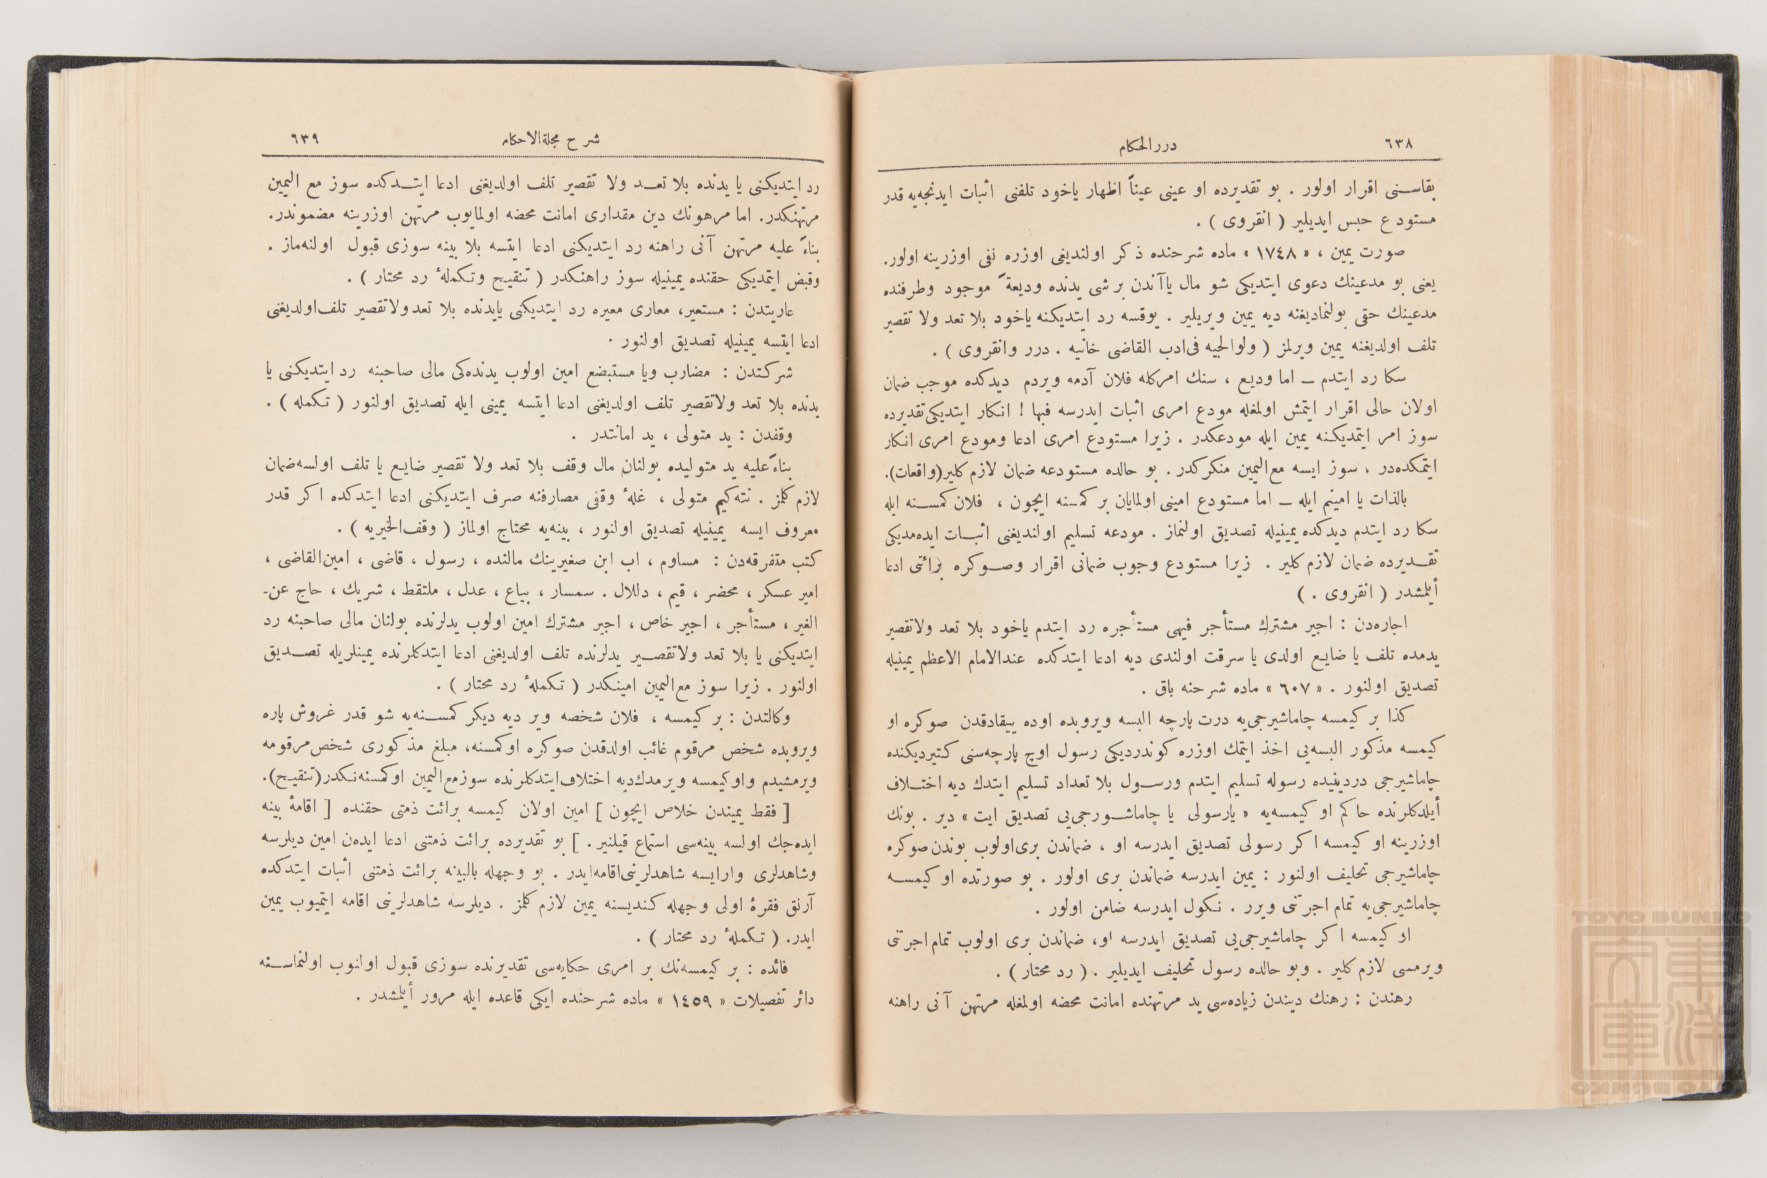 ٦٣٨
دررالحكام
بقاسنی اقرار اولور . بو تقدیرده او عینی عیناً اظهار یاخود تلفنی اثبات ایدنجه‌یه قدر
مستودع حبس ایدیلیر ( انقروی ) .
صورت یمین ، « ١٧٤٨ » ماده شرحنده ذكر اولندیغی اوزره نفی اوزرینه اولور.
یعنی بو مدعینك دعوی ایتدیكی شو مال یاآندن بر شی یدنده ودیعةً موجود وطرفنده
مدعینك حقی بولنمادیغنه دیه یمین ویریلیر . یوقسه رد ایتدیكنه یاخود بلا تعد ولا تقصیر
تلف اولدیغنه یمین ویرلمز ( ولوالجیه فی‌ادب القاضی خانیه . درر وانقروی ) .
سكا رد ایتدم ــ اما ودیع ، سنك امركله فلان آدمه ویردم دیدكده موجب ضمان
اولان حالی اقرار ایتمش اولمغله مودع امری اثبات ایدرسه فبها ! انكار ایتدیكی تقدیرده
سوز امر ایتمدیكنه یمین ایله مودعكدر . زیرا مستودع امری ادعا ومودع امری انكار
ایتمكده‌در ، سوز ایسه مع‌الیمین منكركدر . بو حالده مستودعه ضمان لازم كلیر(واقعات).
بالذات یا امینم ایله ــ اما مستودع امینی اولمایان بر كمسنه ایچون ، فلان كمسنه ایله
سكا رد ایتدم دیدكده یمینیله تصدیق اولنماز . مودعه تسلیم اولندیغنی اثبات ایده‌مدیكی
تقدیرده ضمان لازم كلیر . زیرا مستودع وجوب ضمانی اقرار وصوكره برائتی ادعا
أیلمشدر ( انقروی . )
اجاره‌دن : اجیر مشترك مستأجر فیهی مستأجره رد ایتدم یاخود بلا تعد ولاتقصیر
یدمده تلف یا ضایع اولدی یا سرقت اولندی دیه ادعا ایتدكده عندالامام الاعظم یمینیله
تصدیق اولنور . « ٦٠٧ » ماده شرحنه باق .
كذا بر كیمسه چاماشیرجی‌یه درت پارچه البسه ویروبده اوده ییقادقدن صوكره او
كیمسه مذكور البسه‌یی اخذ ایتمك اوزره كوندردیكی رسول اوچ پارچه‌سنی كتیردیكنده
چاماشیرجی دردینیده رسوله تسلیم ایتدم ورسول بلا تعداد تسلیم ایتدك دیه اختلاف
أیلدكلرنده حاكم او كیمسه‌یه « یارسولی یا چاماشورجی‌یی تصدیق ایت » دیر . بونك
اوزرینه او كیمسه اكر رسولی تصدیق ایدرسه او ، ضماندن بری‌اولوب بوندن صوكره
چاماشیرجی تحلیف اولنور : یمین ایدرسه ضماندن بری اولور . بو صورتده او كیمسه
چاماشیرجی‌یه تمام اجرتنی ویرر . نكول ایدرسه ضامن اولور .
او كیمسه اكر چاماشیرجی‌یی تصدیق ایدرسه او، ضماندن بری اولوب تمام اجرتنی
ویرمسی لازم كلیر . وبو حالده رسول تحلیف ایدیلیر . ( رد محتار ) .
رهندن : رهنك دیندن زیاده‌سی ید مرتهنده امانت محضه اولمغله مرتهن آنی راهنه
شرح مجلةالاحكام
٦٣٩
رد ایتدیكنی یا یدنده بلا تعد ولا تقصیر تلف اولدیغنی ادعا ایتدكده سوز مع الیمین
مرتهنكدر. اما مرهونك دین مقداری امانت محضه اولمایوب مرتهن اوزرینه مضموندر.
بناءً علیه مرتهن آنی راهنه رد ایتدیكنی ادعا ایتسه بلا بینه سوزی قبول اولنه‌ماز .
وقبض ایتمدیكی حقنده یمینیله سوز راهنكدر ( تنقیح وتكملهٔ رد محتار ) .
عاریتدن : مستعیر، معاری معیره رد ایتدیكنی یایدنده بلا تعد ولاتقصیر تلف‌اولدیغنی
ادعا ایتسه یمینیله تصدیق اولنور .
شركتدن : مضارب ویا مستبضع امین اولوب یدنده‌كی مالی صاحبنه رد ایتدیكنی یا
یدنده بلا تعد ولاتقصیر تلف اولدیغنی ادعا ایتسه یمینی ایله تصدیق اولنور ( تكمله ) .
وقفدن : ید متولی ، ید امانتدر .
بناءً علیه ید متولیده بولنان مال وقف بلا تعد ولا تقصیر ضایع یا تلف اولسه‌ضمان
لازم كلمز . نته‌كیم متولی ، غلهٔ وقفی مصارفنه صرف ایتدیكنی ادعا ایتدكده اكر قدر
معروف ایسه یمینیله تصدیق اولنور ، بینه‌یه محتاج اولماز ( وقف‌الخیریه ) .
كتب متفرقه‌دن : مساوم ، اب ابن صغیرینك مالنده ، رسول ، قاضی ، امین‌القاضی ،
امیر عسكر ، محضر ، قیم ، دلال . سمسار ، بیاع ، عدل ، ملتقط ، شریك ، حاج عن-
الغیر ، مستأجر ، اجیر خاص ، اجیر مشترك امین اولوب یدلرنده بولنان مالی صاحبنه رد
ایتدیكنی یا بلا تعد ولاتقصیر یدلرنده تلف اولدیغنی ادعا ایتدكلرنده یمینلریله تصدیق
اولنور . زیرا سوز مع‌الیمین امینكدر ( تكملهٔ رد محتار ) .
وكالتدن : بر كیمسه ، فلان شخصه ویر دیه دیكر كمسنه‌یه شو قدر غروش پاره
ویروبده شخص مرقوم غائب اولدقدن صوكره اوكمسنه، مبلغ مذكوری شخص‌مرقومه
ویرمشیدم واوكیمسه ویرمدك‌دیه اختلاف‌ایتدكلرنده سوزمع‌الیمین اوكمسنه‌نكدر(تنقیح).
[ فقط یمیندن خلاص ایچون ] امین اولان كیمسه برائت ذمتی حقنده [ اقامهٔ بینه
ایده‌جك اولسه بینه‌سی استماع قیلنیر . ] بو تقدیرده برائت ذمتنی ادعا ایده‌ن امین دیلرسه
وشاهدلری وارایسه شاهدلرینی‌اقامه‌ایدر . بو وجهله بالبینه برائت ذمتنی اثبات ایتدكده
آرتق فقرهٔ اولی وجهله كندیسنه یمین لازم كلمز . دیلرسه شاهدلرینی اقامه ایتمیوب یمین
ایدر. ( تكملهٔ رد محتار ) .
فائده : بر كیمسه‌نك بر امری حكایه‌سی تقدیرنده سوزی قبول اولنوب اولنماسنه
دائر تفصیلات « ١٤٥٩ » ماده شرحنده ایكی قاعده ایله مرور أیلمشدر .
TOYO BUNKO
東洋文庫